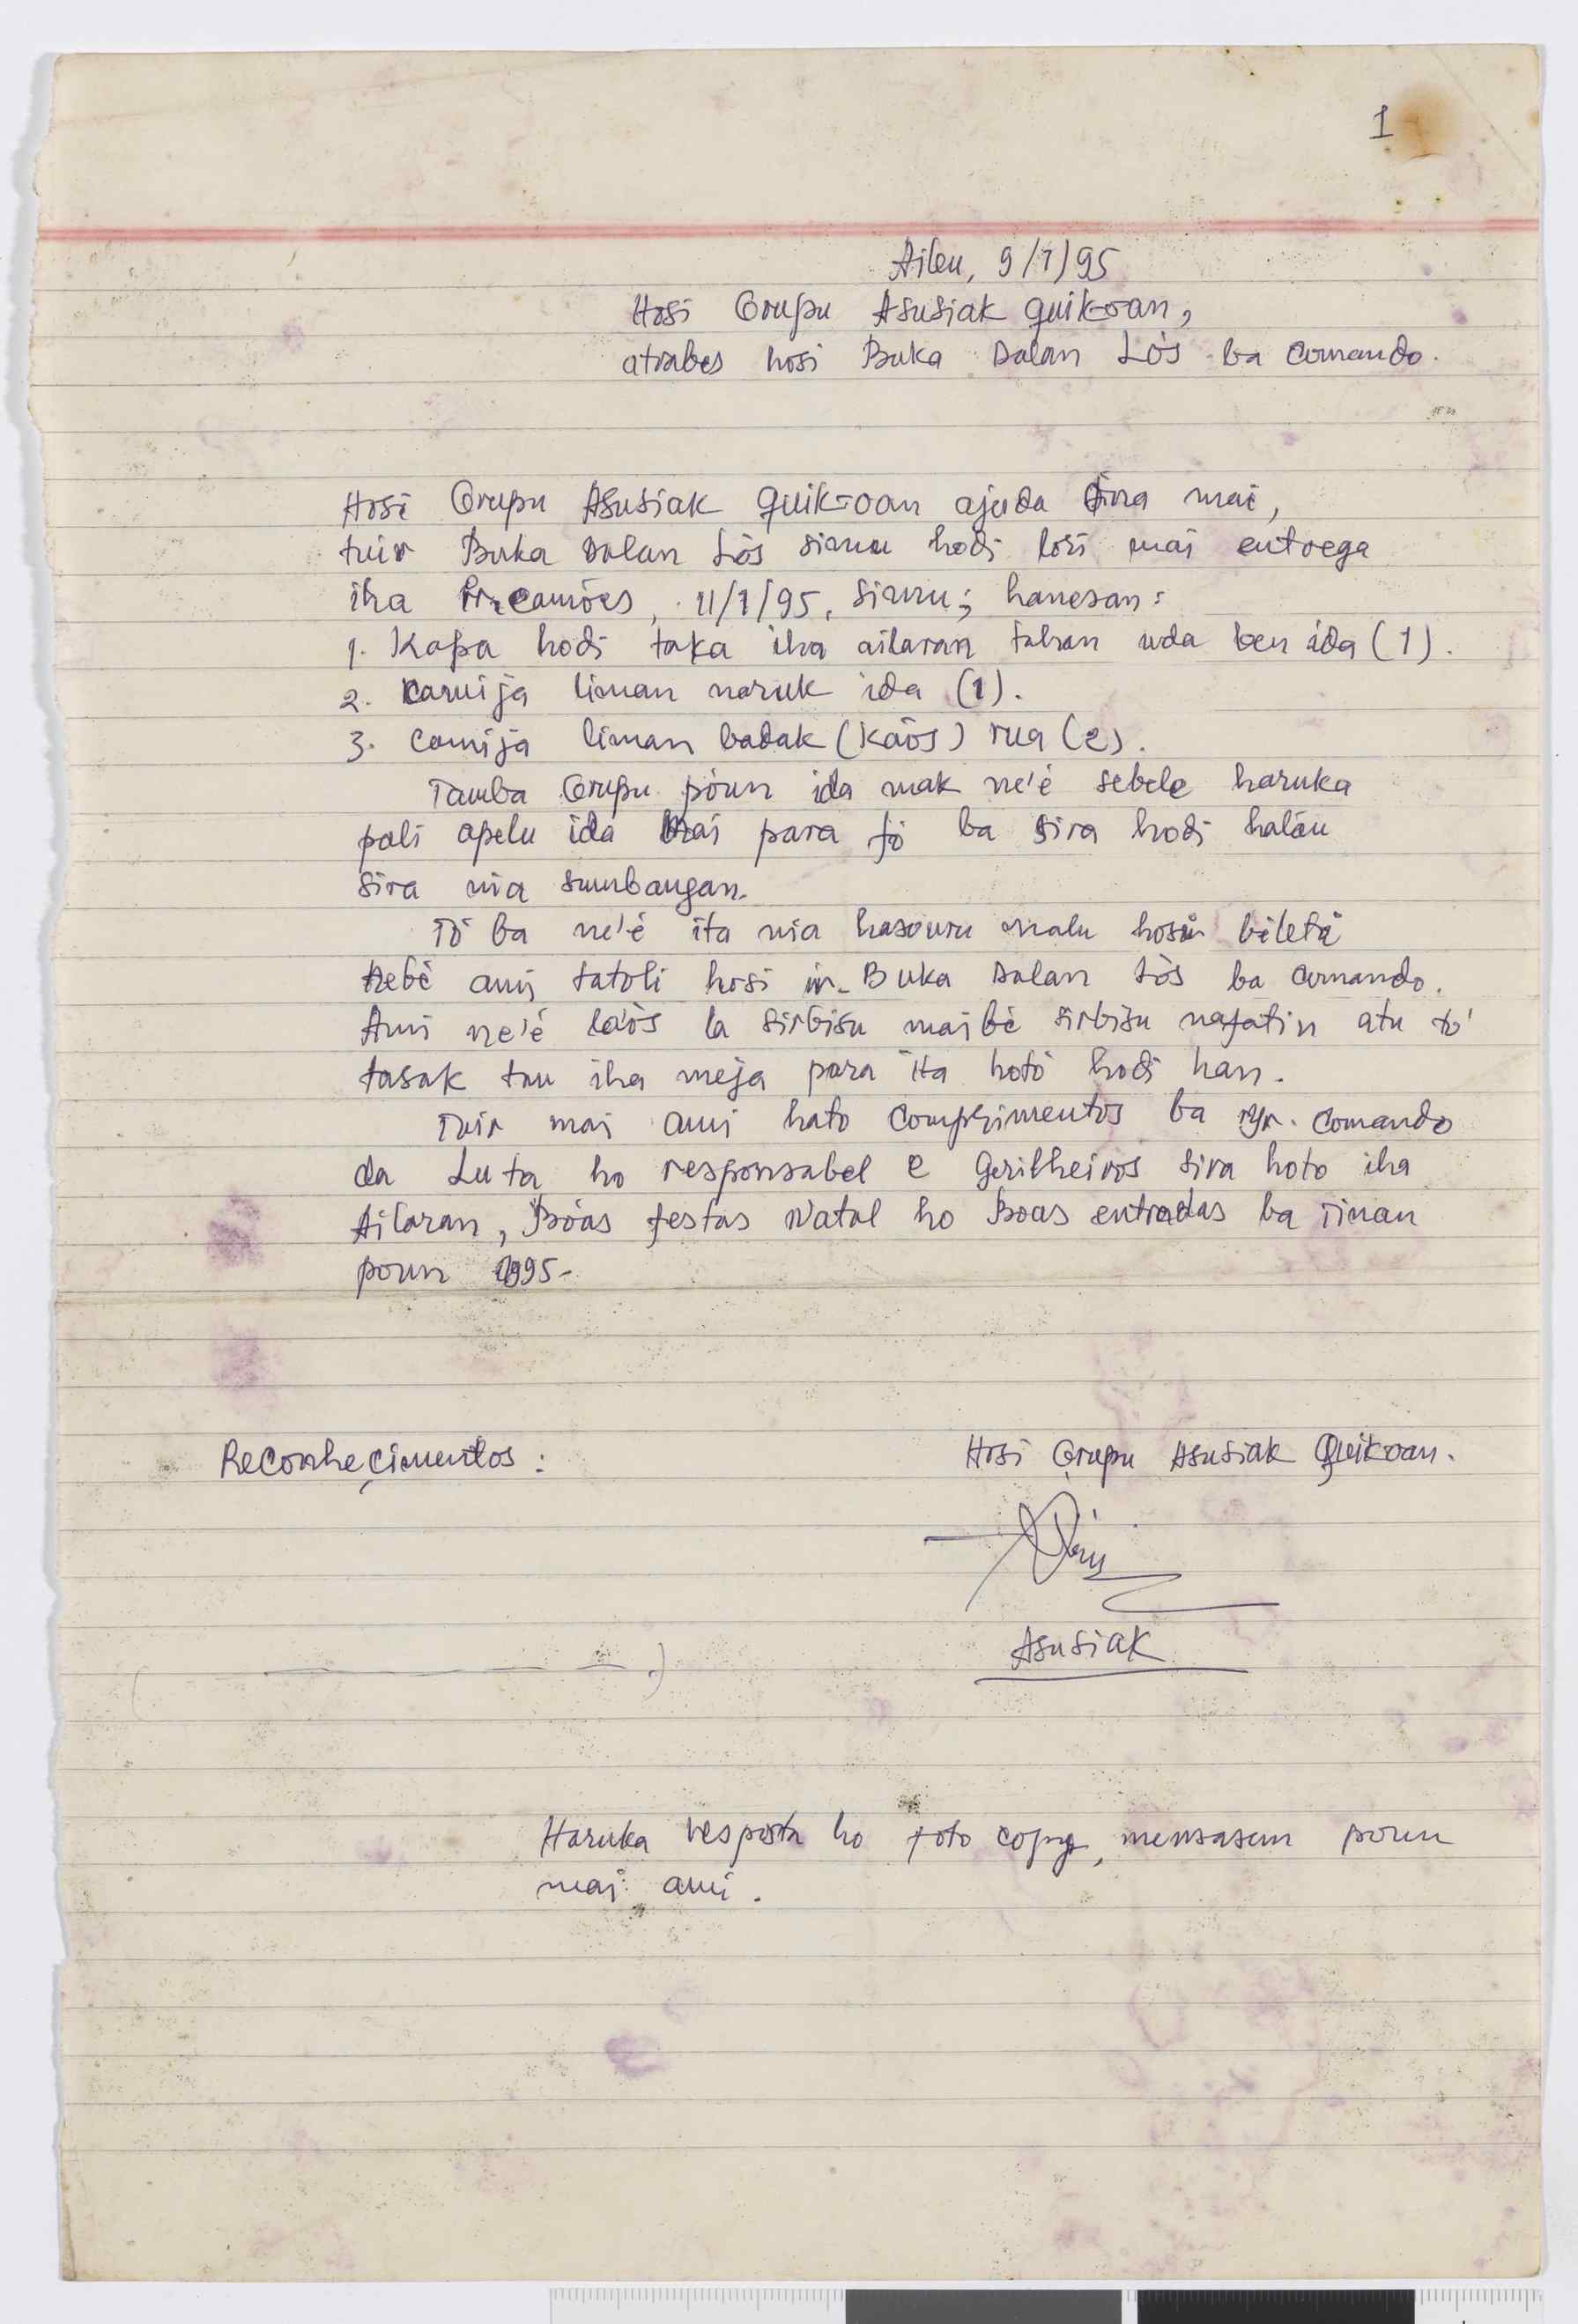 1
Aileu, 9/1/95
Hosi Grupu Asusiak quik-oan,
atrabes hosi Buka Dalan Lòs ba comando.
Hosi Grupu Asusiak quik-oan ajuda sira mai,
tuir Buka Dalan Lòs simu hodi lori mai entrega
iha camões, 11/1/95, simu; hanesan:
1. Kapa hodi taka iha ailaran tahan uda ben ida (1).
2. Camija liman naruk ida (1).
3. Camija liman badak (kaòs) rua (2).
Tamba Grupu pòun ida mak ne'é sebele haruka
pali apelu ida mai para fò ba sira hodi halàu
sira nia sumbangan.
Tò ba ne'é ita nia hasouru malu hosi biletì
nebè ami tatoli hosi ir. Buka Dalan Lòs ba comando.
Ami ne'é la'òs la sirbisu maibè sirbisu nafatin atu tò
tasak tau iha meja para ita hotò hodi han.
Tuir mai ami hato comprimentos ba comando
da Luta ho responsabel e Gerilheiros sira hoto iha
Ailaran, Bòas festas Natal ho Boas entradas ba Tinan
poun 1995-
Reconheçimentos:
Hosi Grupu Asusiak Quikoan.
Asusiak
( — — — — — .)
Haruka resposta ho foto copy, mensasem poun
mai ami.